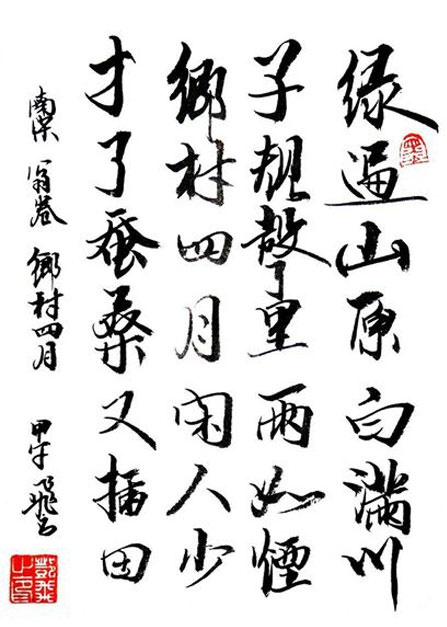 绿遍山原白滿川
子規聲里雨如煙
鄉村四月闲人少
才了蚕桑又插田
南宋 翁卷 鄉村四月 甲午